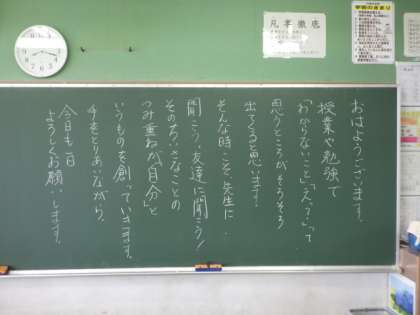 凡事徹底
おはようございます。
授業や勉強で
「わからないこと」「えっ？」って
思うところがそろそろ
出てくると思います。
そんな時こそ、先生に
聞こう、友達に聞こう！
そのちいさなことの
つみ重ねが「自分」と
いうものを創っていきます。
手をとりあいながら、
今日も一日
よろしくお願いします。